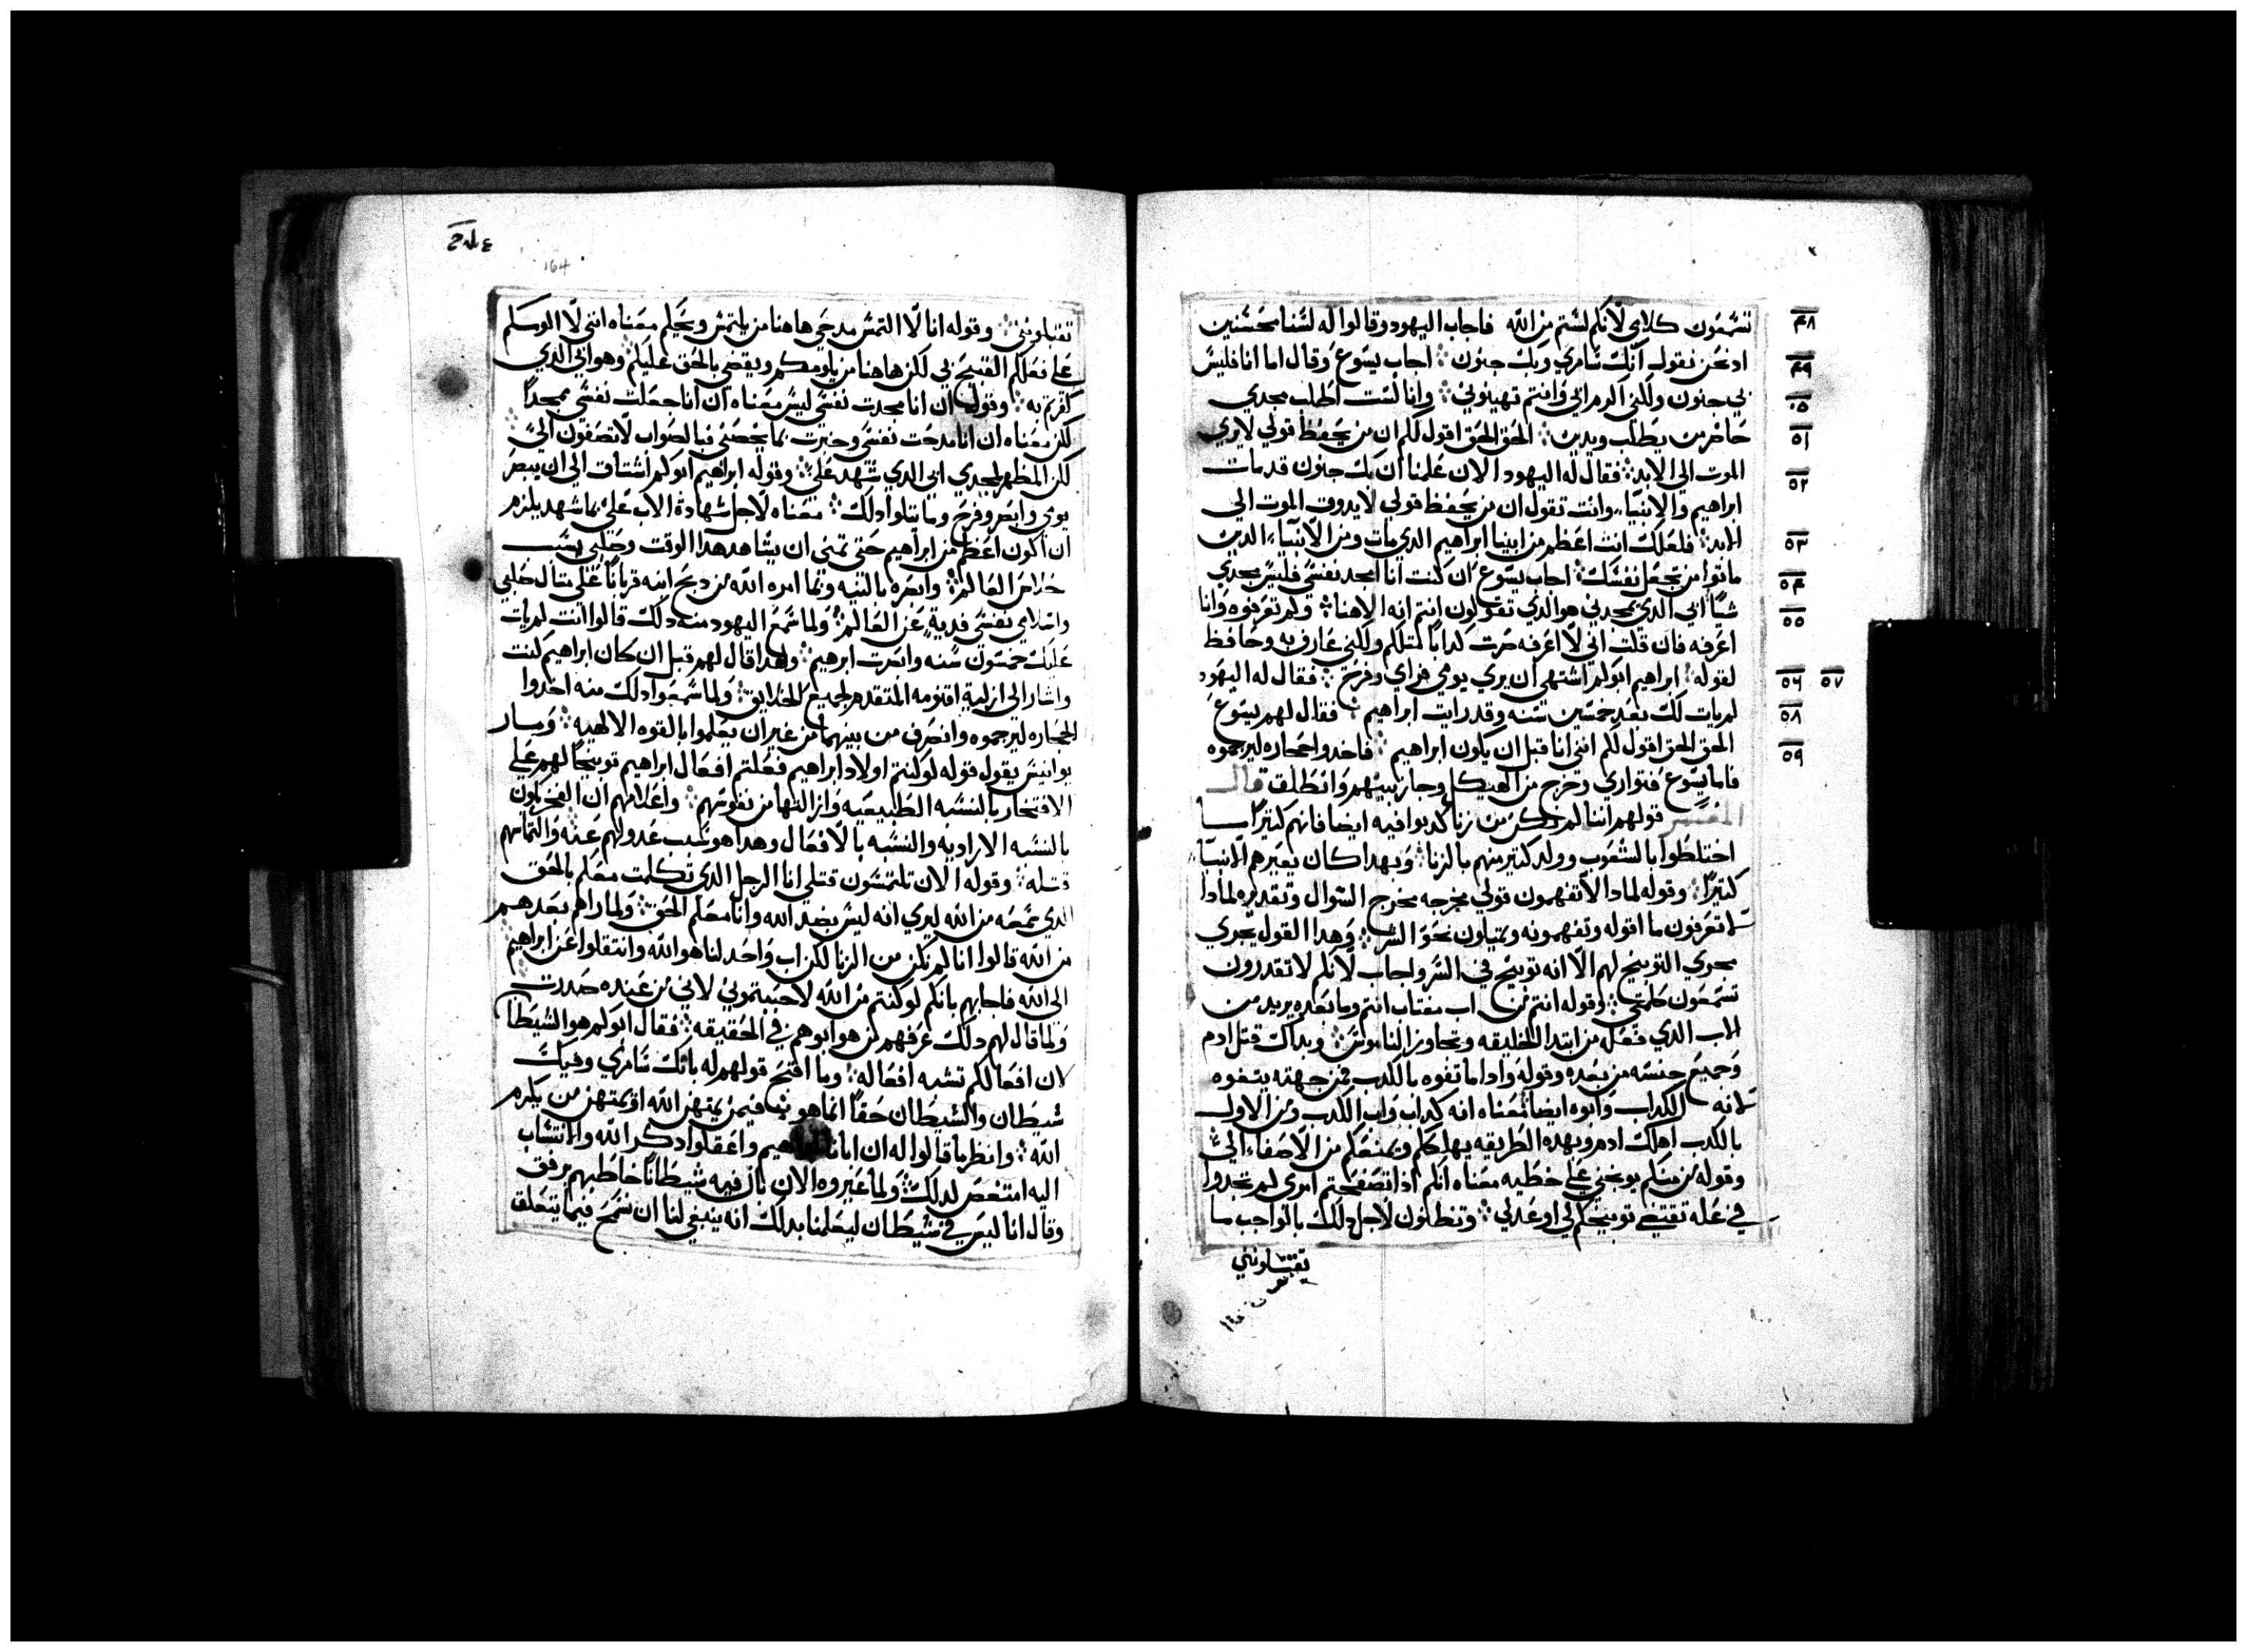 تسمعون كلامي لانكم لستم من الله فاجاب اليهود وقالوا له لسنا محسنين
اذ نحن نقول انك سامري وبك جنون ۞ اجاب يسوع وقال اما انا فليس
بي جنون ولكني اكرم ابي وانتم تهينوني ۞ وانا لست اطلب مجدي
حاضر من يطلب ويدين ۞ الحق الحق اقول لكم ان من يحفظ قولي لا يري
الموت الي الابد ۞ فقال له اليهود الان علمنا ان بك جنون قد مات
ابراهيم والانبيا وانت تقول ان من يحفظ قولي لا يدوق الموت الي
الابد ۞ فلعلك انت اعظم من ابينا ابراهيم الدي مات ومن الانبياء الدين
ماتوا من تجعل نفسك ۞ اجاب يسوع ان كنت انا امجد نفسي فليس مجدي
شيا ابي الدي يمجدني هو الدي تقولون انتم انه الاهنا ۞ ولم تعرفوه وانا
اعرفه فان قلت اني لا اعرفه صرت كدابا مثلكم ولكني عارف به وحافظ
لقوله ۞ ابراهيم ابوكم اشتهي ان يري يومي فراي وفرح ۞ فقال له اليهود
لم يات لك بعد خمسين سنه وقد رايت ابراهيم ۞ فقال لهم يسوع
الحق الحق اقول لكم انني انا قبل ان يكون ابراهيم ۞ فاخدوا حجاره ليرجموه
فاما يسوع فتواري وخرج من الهيكل وجاز بينهم وانطلق قال
المفسر قولهم اننا لم نكن من زنا كدبوا فيه ايضا فانهم كثيرا ما
اختلطوا بالشعوب وولد كتير منهم بالزنا ۞ وبهدا كان يعيرهم الانبيا
كتيرا ۞ وقوله لمادا لا تفهمون قولي مخرجه مخرج السوال وتقديره لمادا
لا تعرفون ما اقوله وتفهمونه وتميلون نحو الشر ۞ وهدا القول يجري
مجري التوبيخ لهم الا انه توبيخ في السر واجاب لانكم لا تقدرون
تسمعون كلمتي ۞ وقوله انتم من اب مغتاب انتم وما بعده يريد من
الاب الدي فعل من ابتدا الخليقه وتجاوز الناموس ۞ وبداك قتل ادم
وجميع جنسه من بعده وقوله وادا ما تفوه بالكدب فمن جهته يتفوه
لانه الكداب وابوه ايضا معناه انه كداب واب الكدب ومن الاول
بالكدب اهلك ادم وبهده الطريقه يهلككم ويمنعكم من الاصغاء الي
وقوله من منكم يوبخني علي خطيه معناه انكم ادا تصفحتم امري لم تجدوا
في عله تقتضي توبيخكم لي او عدلي ۞ وتطالبون لاجل دلك بالواجب ما
تقبلونني
٤٨
٤٩
٥٠
٥١
٥٢
٥٣
٥٤
٥٥
٥٦ ٥٧
٥٨
٥٩
164
تقبلونني ۞ وقوله انا لا التمس مدحي هاهنا من يلتمس ويحكم معناه انني لا الومكم
علي فعلكم القبيح بي لكن هاهنا من يلومكم ويقضي بالحق عليكم ۞ وهو ابي الدي
كفرتم به ۞ وقوله ان انا مجدت نفسي ليس معناه ان انا جعلت نفسي ممجدا
لكن معناه ان انا مدحت نفسي وخبرت بما يخصني فبالصواب لا تصغون الي ۞
لكن المظهر لمجدي ابي الدي شهد علي ۞ وقوله ابراهيم ابوكم اشتاق الي ان يبصر
يومي وابصر وفرح وما يتلوا دلك ۞ معناه لاجل شهادة الاب علي بما شهد يلزم
ان اكون اعظم من ابراهيم حتي تمني ان يشاهد هدا الوقت وصلبي بسبب
خلاص العالم ۞ وابصره بالنيه وقما امره الله من دبح ابنه قربانا علي مثال صلبي
واسلامي نفسي فدية عن العالم ۞ ولما سمع اليهود منه دلك قالوا انت لم يات
عليك خمسون سنه وابصرت ابرهيم ۞ ولهدا قال لهم قبل ان كان ابراهيم كنت
واشار الي ازلية اقنومه المتقدم لجميع الخلايق ۞ ولما سمعوا دلك منه اخدوا
الحجاره ليرجموه وانصرف من بينهم من غير ان يعلموا بالقوه الالاهيه ۞ ومار
يوانيس يقول قوله لو كنتم اولاد ابراهيم فعلتم افعال ابراهيم توبيخا لهم علي
الافتخار بالنسبه الطبيعيه وازالتها من نفوسهم ۞ واعلامهم ان الفخر يكون
بالنسبه الاراديه والنسبه بالافعال وهدا هو سبب عدولهم عنه والتماسهم
قتله ۞ وقوله الان تلتمسون قتلي انا الرجل الدي تكلمت معكم بالحق
الدي سمعه من الله ليري انه ليس بضد الله وانا معلم الحق ۞ ولما راهم بعدهم
من الله قالوا انا لم نكن من الزنا لكن اب واحد لنا هو الله وانتقلوا عن ابراهيم
الي الله فاجابهم بانكم لو كنتم من الله لاحببتموني لاني من عنده صدرت
ولما قال لهم دلك عرفهم من هو ابوهم في الحقيقه ۞ فقال ابوكم هو الشيطان
لان افعالكم تشبه افعاله ۞ وما اقبح قولهم له بانك سامري وفيك
شيطان والشيطان حقا انما هو فيمن يمتهن الله او يمتهن من يكرم
الله ۞ وانظر ما قالوا له ان ابانا ابراهيم واغفلوا دكر الله والانتساب
اليه امتعض لدلك ۞ ولما عيروه الان بان فيه شيطانا خاطبهم برفق
وقال انا ليس في شيطان ليعلمنا بدلك انه ينبغي لنا ان نسمح فيما يتعلق